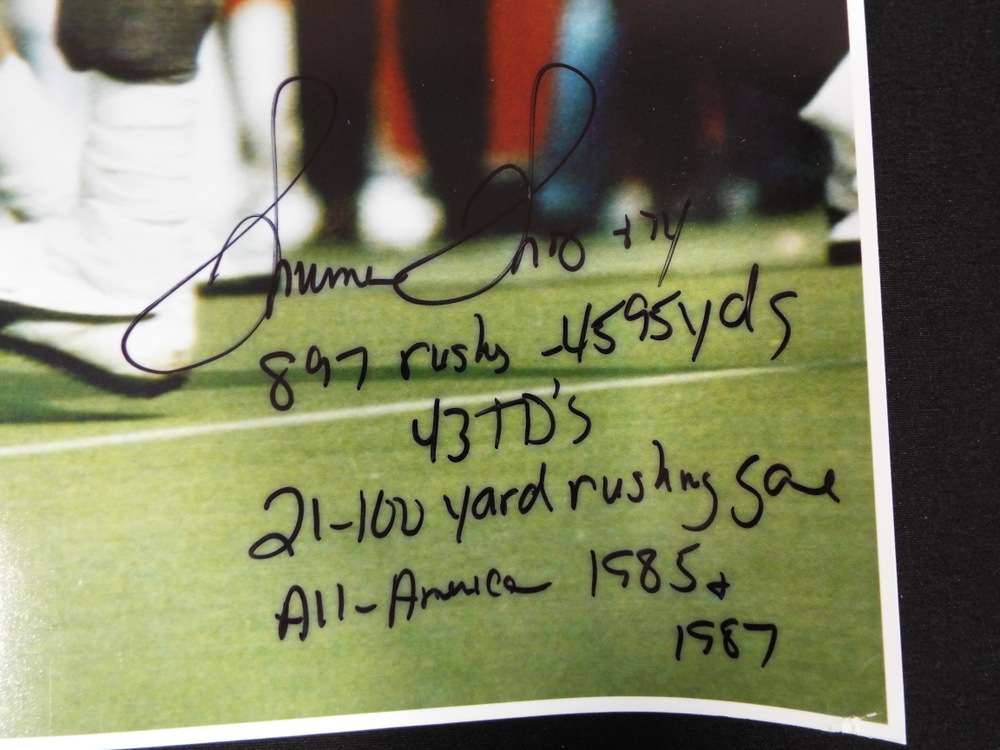 Thurman Thomas #34
897 rushs -4595yds
43TD's
21-100 yard rushing game
All-America 1985 +
1987